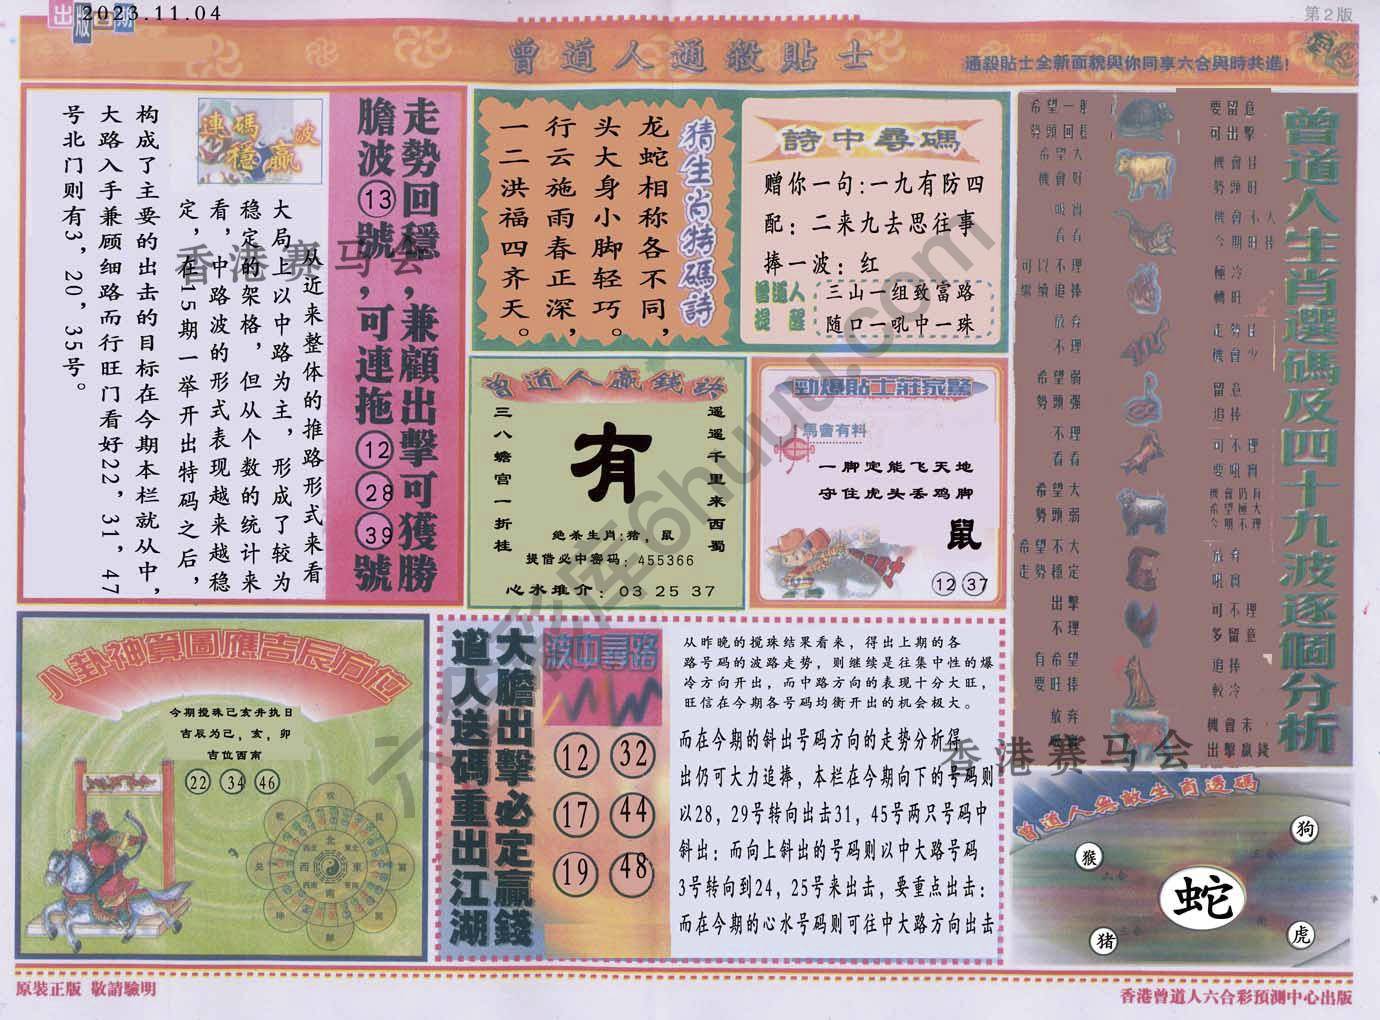 出版日期
2023.11.04
第2版
曾道人通殺貼士
通殺貼士全新面貌與你同享六合與時共進!
走勢回穩,兼顧出擊可獲勝
膽波13號,可連拖12 28 39號
連碼穩贏波
从近来整体的推路形式来看
大局上以中路为主，形成了较为
稳定的架格，但从个数的统计来
看，中路波的形式表现越来越稳
定，在15期一举开出特码之后，
构成了主要的出击的目标在今期本栏就从中，
大路入手兼顾细路而行旺门看好22，31，47
号北门则有3，20，35号。
猜生肖特碼詩
龙蛇相称各不同，
头大身小脚轻巧。
行云施雨春正深，
一二洪福四齐天。
詩中尋碼
赠你一句:一九有防四
配：二来九去思往事
捧一波：红
曾道人提醒
三山一组致富路
随口一吼中一珠
曾道人贏錢路
遥遥千里来西蜀
有
三八蟾宫一折桂
绝杀生肖:猪，鼠
提借必中密码：455366
心水堆介：03 25 37
勁爆貼士莊家驚
馬會有料
一脚定能飞天地
守住虎头丢鸡脚
鼠
12 37
曾道人生肖選碼及四十九波逐個分析
希望一般
勢頭回穩
要留意
可出擊
希望大
機會好
機會佳
勢頭旺
吸肖
看看
機會不大
今期旺捧
可以不理
繼續追捧
極冷
轉旺
放弃
不理
走勢佳
機會少
希望弱
勢頭强
留意
追捧
不理
看看
可不理
要吼實
希望大
勢頭弱
機會仍有
希望極大
今期不理
希望不大
走勢穩定
放弃
吼實
出擊
不理
可不理
多留意
有希望
要旺捧
追捧
較冷
放弃
機會未
出擊贏錢
八卦神算圖應吉辰方位
今期搅珠己亥并执日
吉辰为己，亥，卯
吉位西南
22 34 46
北
東北
東
東南
南
西南
西
西北
大膽出擊必定贏錢
道人送碼重出江湖
波中尋路
12 32
17 44
19 48
从昨晚的搅珠结果看来，得出上期的各
路号码的波路走势，则继续是往集中性的爆
冷方向开出，而中路方向的表现十分大旺，
旺信在今期各号码均衡开出的机会极大。
而在今期的斜出号码方向的走势分析得
出仍可大力追捧，本栏在今期向下的号码则
以28，29号转向出击31，45号两只号码中
斜出：而向上斜出的号码则以中大路号码
3号转向到24，25号来出击，要重点出击：
而在今期的心水号码则可往中大路方向出击
曾道人無敵生肖透碼
狗
猴
蛇
猪
虎
香港赛马会
香港赛马会
六合彩库6huuu.com
原裝正版 敬請驗明
香港曾道人六合彩預測中心出版